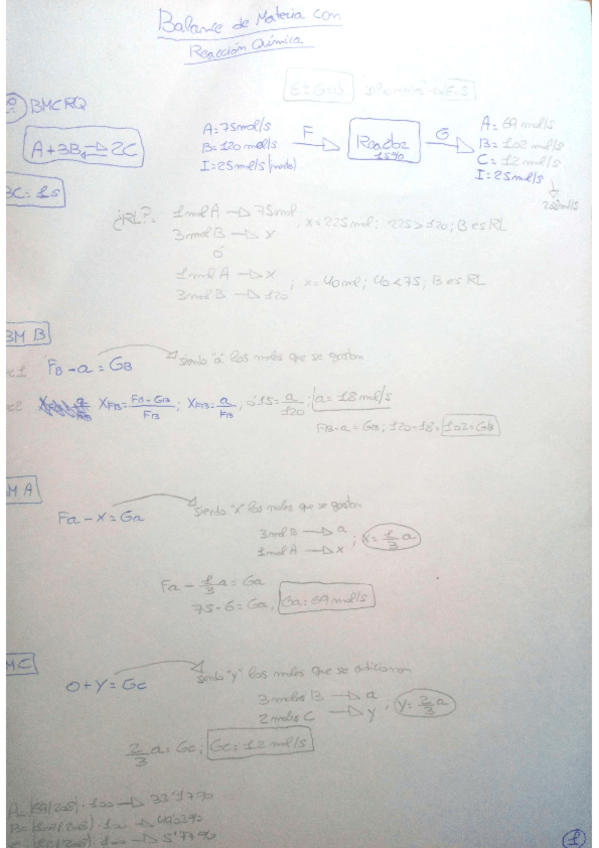 Balance de Materia con
Reacción Química
BMCRQ
E=G=S
A+3B ⇌ 2C
A=75mol/s
B=120mol/s
I=25mol/s (inerte)
F
Reactor
15%
G
A=69mol/s
B=102mol/s
C=12mol/s
I=25mol/s
208mol/s
BC: 1s
¿RL?:
1molA → 75mol
3molB → x
, x=225mol; 225>120; B es RL
ó
1molA → x
3molB → 120
; x=40mol; 40<75, B es RL
BM B
FB-a=GB
siendo "a" los moles que se gastan
XFB=FB-GB/FB; XFB=a/FB; 0'15=a/120; a=18mol/s
FB-a=GB; 120-18=102=GB
M A
Fa-x=Ga
siendo "x" los moles que se gastan
3molB → a
1molA → x
; x=1/3 a
Fa-1/3a=Ga
75-6=Ga; Ga=69mol/s
MC
0+Y=Gc
siendo "y" los moles que se adicionan
3molesB → a
2molesC → y
; y=2/3 a
2/3a=Gc; Gc=12mol/s
A=(69/208)·100 → 33'17%
→ 5'77%
1